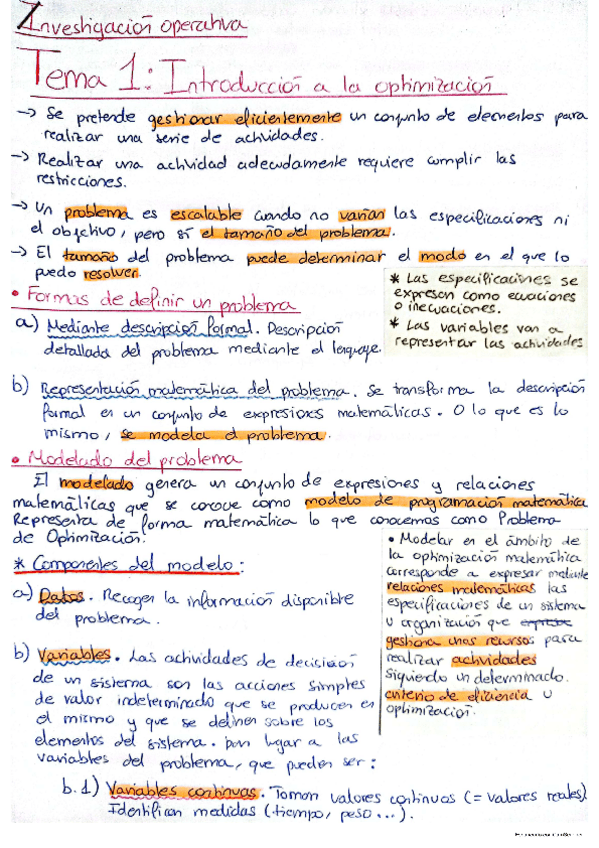 Investigación operativa
Tema 1: Introducción a la optimización
→ Se pretende gestionar eficientemente un conjunto de elementos para
realizar una serie de actividades.
→ Realizar una actividad adecuadamente requiere cumplir las
restricciones.
→ Un problema es escalable cuando no varían las especificaciones ni
el objetivo, pero sí el tamaño del problema.
→ El tamaño del problema puede determinar el modo en el que lo
puedo resolver.
* Las especificaciones se
expresan como ecuaciones
o inecuaciones.
* Las variables van a
representar las actividades
• Formas de definir un problema
a) Mediante descripción formal. Descripción
detallada del problema mediante el lenguaje.
b) Representación matemática del problema. Se transforma la descripción
formal en un conjunto de expresiones matemáticas. O lo que es lo
mismo, se modela el problema.
• Modelado del problema
El modelado genera un conjunto de expresiones y relaciones
matemáticas que se conoce como modelo de programación matemática
Representa de forma matemática lo que conocemos como Problema
de Optimización.
* Componentes del modelo:
a) Datos. Recogen la información disponible
del problema.
b) Variables. Las actividades de decisión
de un sistema son las acciones simples
de valor indeterminado que se producen en
el mismo y que se definen sobre los
elementos del sistema. Dan lugar a las
variables del problema, que pueden ser:
• Modelar en el ámbito de
la optimización matemática
corresponde a expresar mediante
relaciones matemáticas las
especificaciones de un sistema
u organización que
gestiona unos recursos para
realizar actividades
siguiendo un determinado
criterio de eficiencia u
optimización.
b.1) Variables continuas. Toman valores continuos (= valores reales)
Identifican medidas (tiempo, peso...).